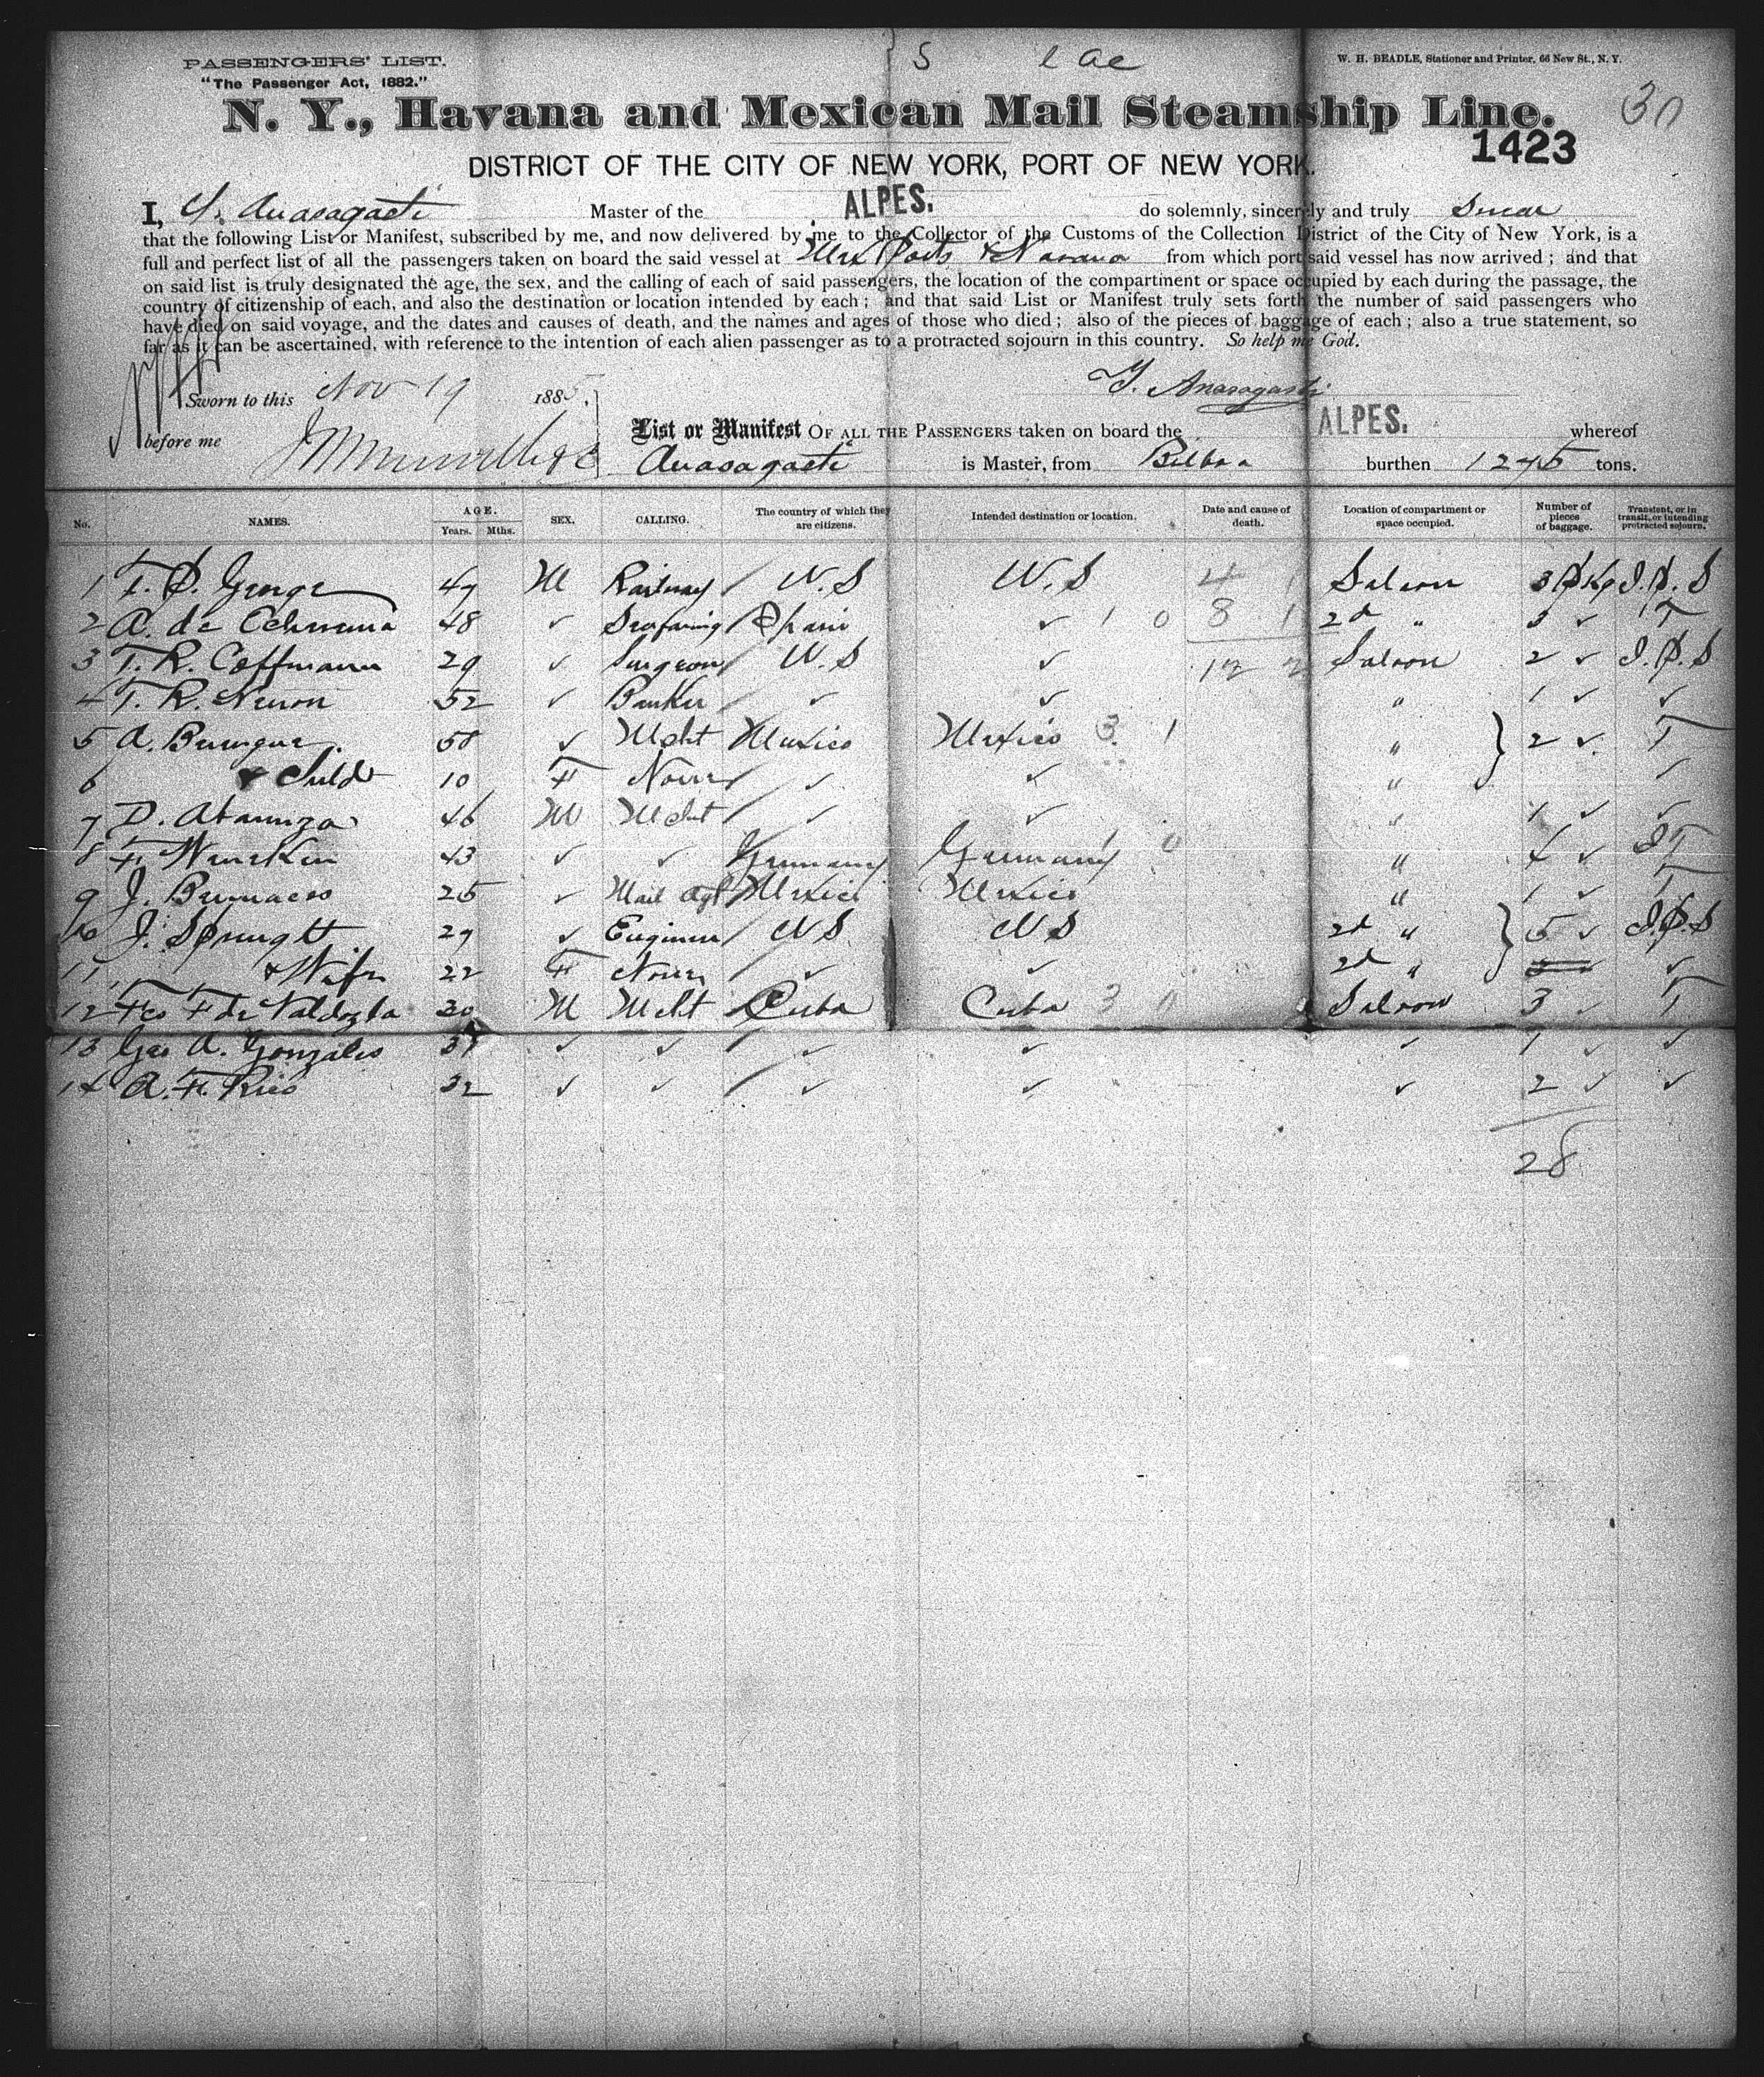 S
PASSENGERS' LIST.
"The Passenger Act, 1882."
W. H. BEADLE, Stationer and Printer, 66 New St., N. Y.
N. Y., Havana and Mexican Mail Steamship Line.
30
1423
DISTRICT OF THE CITY OF NEW YORK, PORT OF NEW YORK.
I, Y. Anasagasti Master of the ALPES. do solemnly, sincerely and truly Swear
that the following List or Manifest, subscribed by me, and now delivered by me to the Collector of the Customs of the Collection District of the City of New York, is a
full and perfect list of all the passengers taken on board the said vessel at Mex Ports & Havana from which port said vessel has now arrived ; and that
on said list is truly designated the age, the sex, and the calling of each of said passengers, the location of the compartment or space occupied by each during the passage, the
country of citizenship of each, and also the destination or location intended by each ; and that said List or Manifest truly sets forth the number of said passengers who
have died on said voyage, and the dates and causes of death, and the names and ages of those who died ; also of the pieces of baggage of each ; also a true statement, so
far as it can be ascertained, with reference to the intention of each alien passenger as to a protracted sojourn in this country. So help me God.
Y. Anasagasti
Sworn to this Nov 19 1885.
before me
List or Manifest OF ALL THE PASSENGERS taken on board the ALPES. whereof
Anasagasti is Master, from Bilbao burthen 1245 tons.
No. NAMES. AGE. Years. Mths. SEX. CALLING. The country of which they are citizens. Intended destination or location. Date and cause of death. Location of compartment or space occupied. Number of pieces of baggage. Transient, or in transit, or intending protracted sojourn.
1 F. P. George 49 M Railway U.S U.S 4 1 Saloon 3 Pkg I.P.S
2 A. de 48 ✓ Seafaring Spain ✓ 1 0 8 1 2d " 3 ✓ T
3 T. R. Coffmann 29 ✓ Surgeon U.S ✓ 12 2 Saloon 2 ✓ I.P.S
4 T. R. 52 ✓ Banker ✓ ✓ " 1 ✓ ✓
5 A. 50 ✓ Mcht Mexico Mexico 3 1 " 2 ✓ T
6 & Child 10 F None ✓ ✓ " ✓
7 D. 46 M Mcht ✓ ✓ " 1 ✓ ✓
8 F. 43 ✓ ✓ Germany Germany 1 0 " 4 ✓ T
9 J. 25 ✓ Mail Agt Mexico Mexico " 1 ✓ T
10 J. 29 ✓ Engineer U S U S 2d " 5 ✓ I.P.S
11 & Wife 22 F None ✓ ✓ 2d " ✓
12 Fco F de 30 M Mcht Cuba Cuba 3 0 Saloon 3 ✓ T
13 Geo A. Gonzales 37 ✓ ✓ ✓ ✓ ✓ 1 ✓ ✓
14 A. F. Rico 32 ✓ ✓ ✓ ✓ ✓ 2 ✓ ✓
28